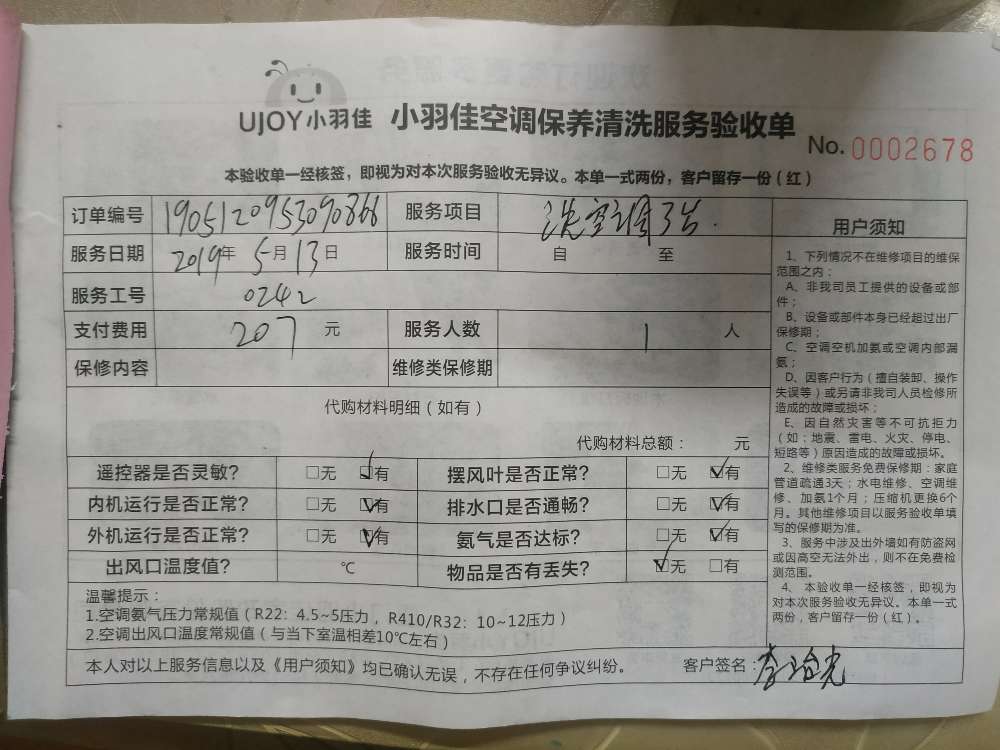 UJOY小羽佳 小羽佳空调保养清洗服务验收单
No. 0002678
本验收单一经核签，即视为对本次服务验收无异议。本单一式两份，客户留存一份（红）
订单编号 190512095309086 服务项目 洗空调3台.
服务日期 2019年5月13日 服务时间 自 至
服务工号 0242
支付费用 207 元 服务人数 1 人
保修内容 维修类保修期
代购材料明细（如有）
代购材料总额： 元
遥控器是否灵敏？ □无 ☑有 摆风叶是否正常？ □无 ☑有
内机运行是否正常？ □无 ☑有 排水口是否通畅？ □无 ☑有
外机运行是否正常？ □无 ☑有 氨气是否达标？ □无 ☑有
出风口温度值？ ℃ 物品是否有丢失？ ☑无 □有
温馨提示：
1.空调氨气压力常规值（R22：4.5~5压力，R410/R32：10~12压力）
2.空调出风口温度常规值（与当下室温相差10℃左右）
本人对以上服务信息以及《用户须知》均已确认无误，不存在任何争议纠纷。 客户签名：
用户须知
1、下列情况不在维修项目的维保
范围之内：
A、非我司员工提供的设备或部
件；
B、设备或部件本身已经超过出厂
保修期；
C、空调空机加氨或空调内部漏
氨；
D、因客户行为（擅自装卸、操作
失误等）或另请非我司人员检修所
造成的故障或损坏；
E、因自然灾害等不可抗拒力
（如：地震、雷电、火灾、停电、
短路等）原因造成的故障或损坏。
2、维修类服务免费保修期：家庭
管道疏通3天；水电维修、空调维
修、加氨1个月；压缩机更换6个
月。其他维修项目以服务验收单填
写的保修期为准。
3、服务中涉及出外墙如有防盗网
或因高空无法外出，则不在免费检
测范围。
4、本验收单一经核签，即视为
对本次服务验收无异议。本单一式
两份，客户留存一份（红）。